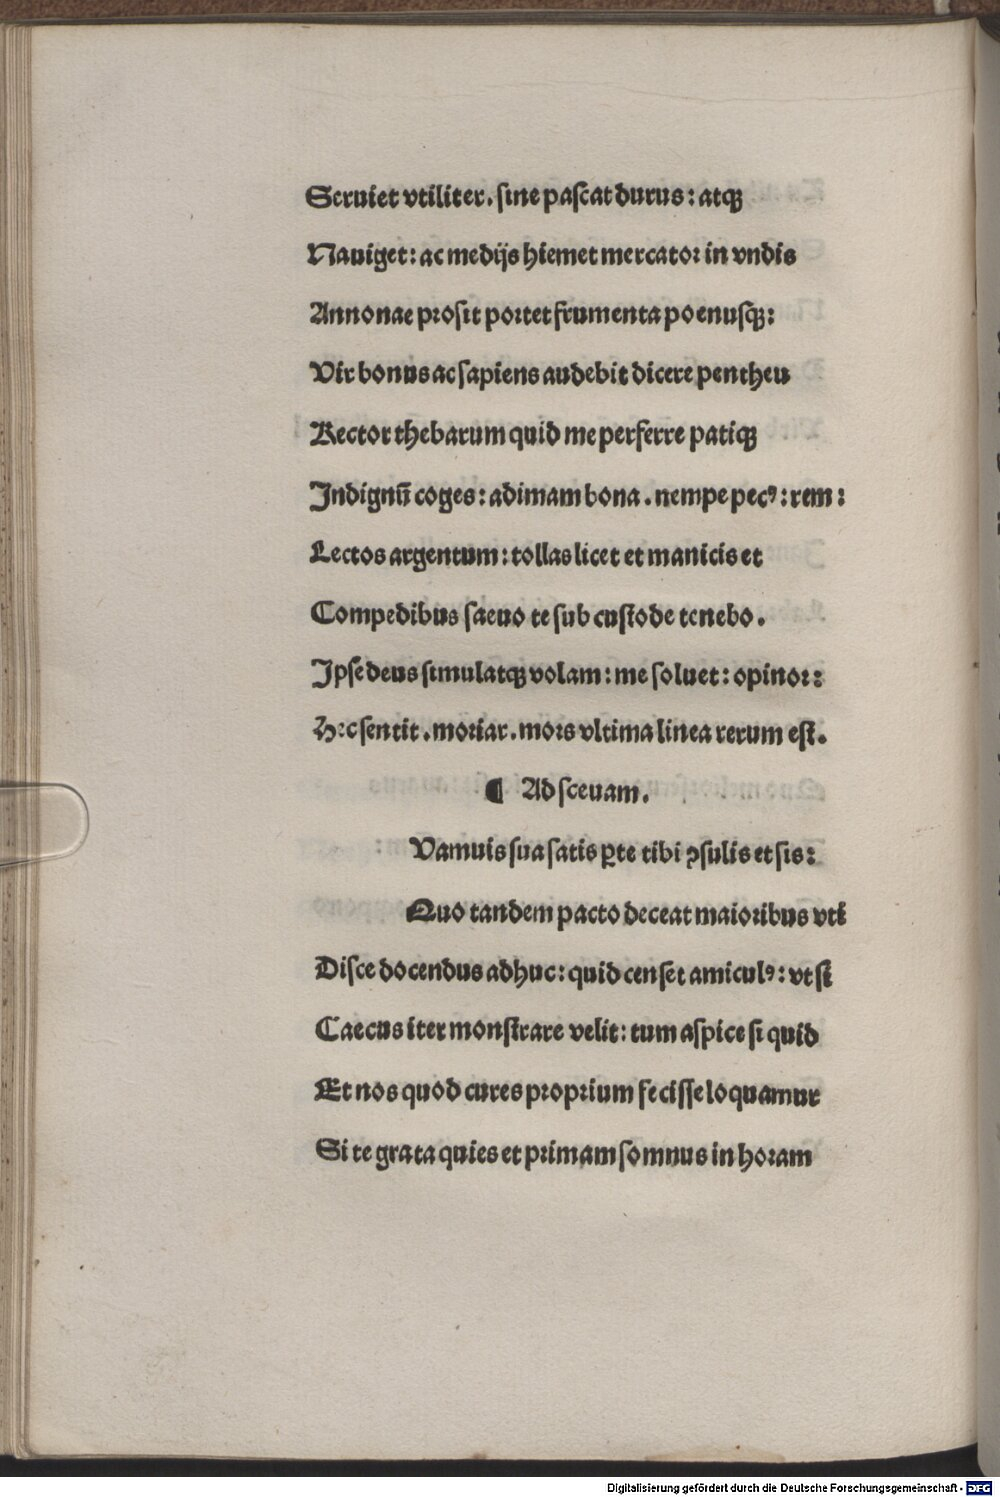 Seruiet vtiliter. sine pascat durus: atqꝫ
Nauiget: ac medijs hiemet mercator in vndis
Annonae prosit portet frumenta poenusqꝫ:
Vir bonus ac sapiens audebit dicere pentheu
Rector thebarum quid me perferre patiqꝫ
Indignū coges: adimam bona. nempe pecꝰ: rem:
Lectos argentum: tollas licet et manicis et
Compedibus saeuo te sub custode tenebo.
Ipse deus simulatqꝫ volam: me soluet: opinor:
Hec sentit. moriar. mors vltima linea rerum est.
¶ Ad sceuam.
Vamuis sua satis ꝑte tibi ꝯsulis et sis:
Quo tandem pacto deceat maioribus vti
Disce docendus adhuc: quid censet amiculꝰ: vt si
Caecus iter monstrare velit: tum aspice si quid
Et nos quod cures proprium fecisse loquamur
Si te grata quies et primam somnus in horam
Digitalisierung gefördert durch die Deutsche Forschungsgemeinschaft - DFG